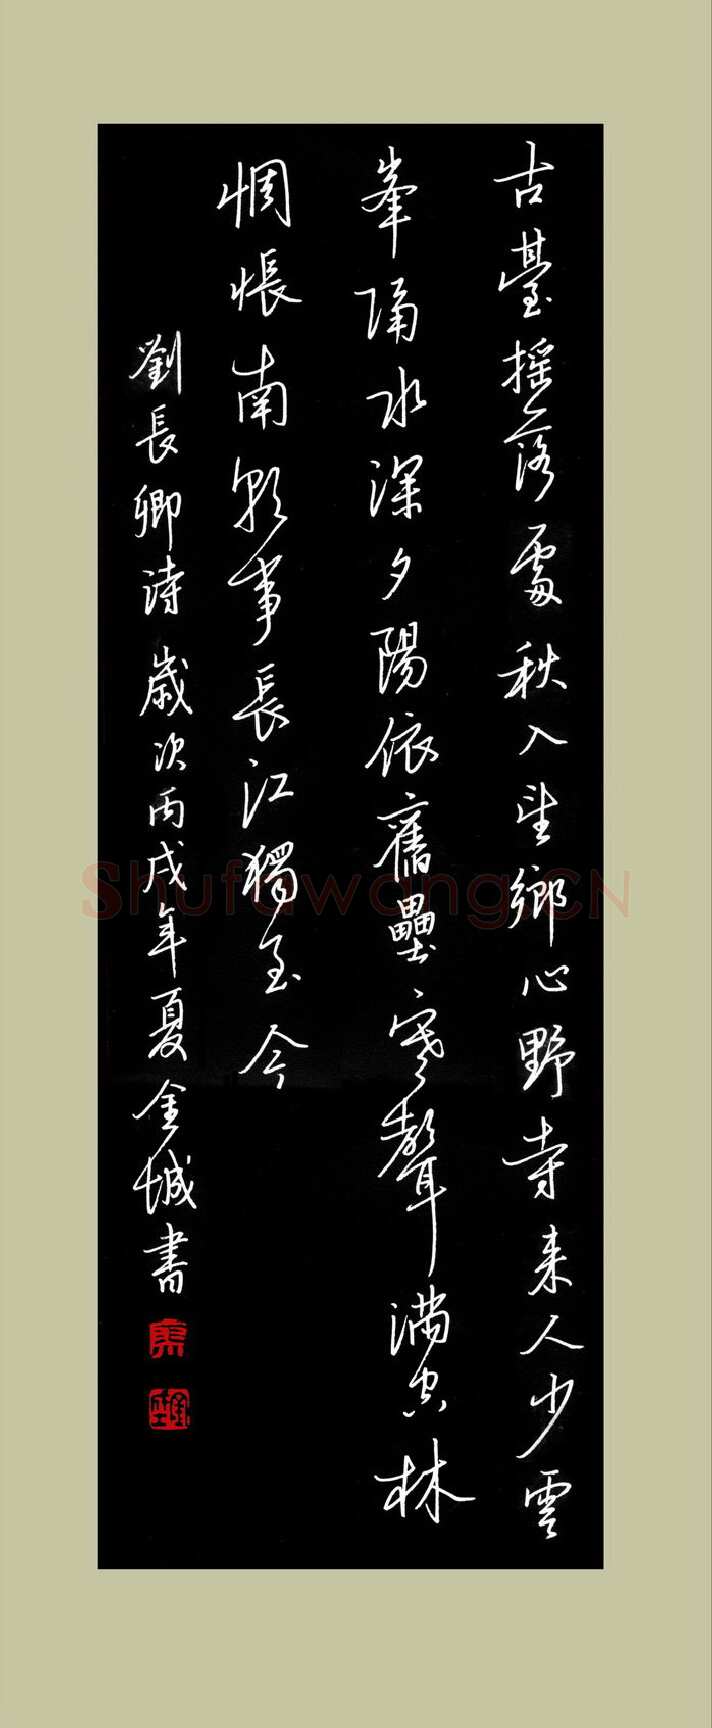 古臺摇落處秋入望鄉心野寺来人少雲
峯隔水深夕陽依舊壘寒聲满空林
惆悵南朝事長江獨至今
劉長卿诗歲次丙戌年夏金城書
Shufawang.CN